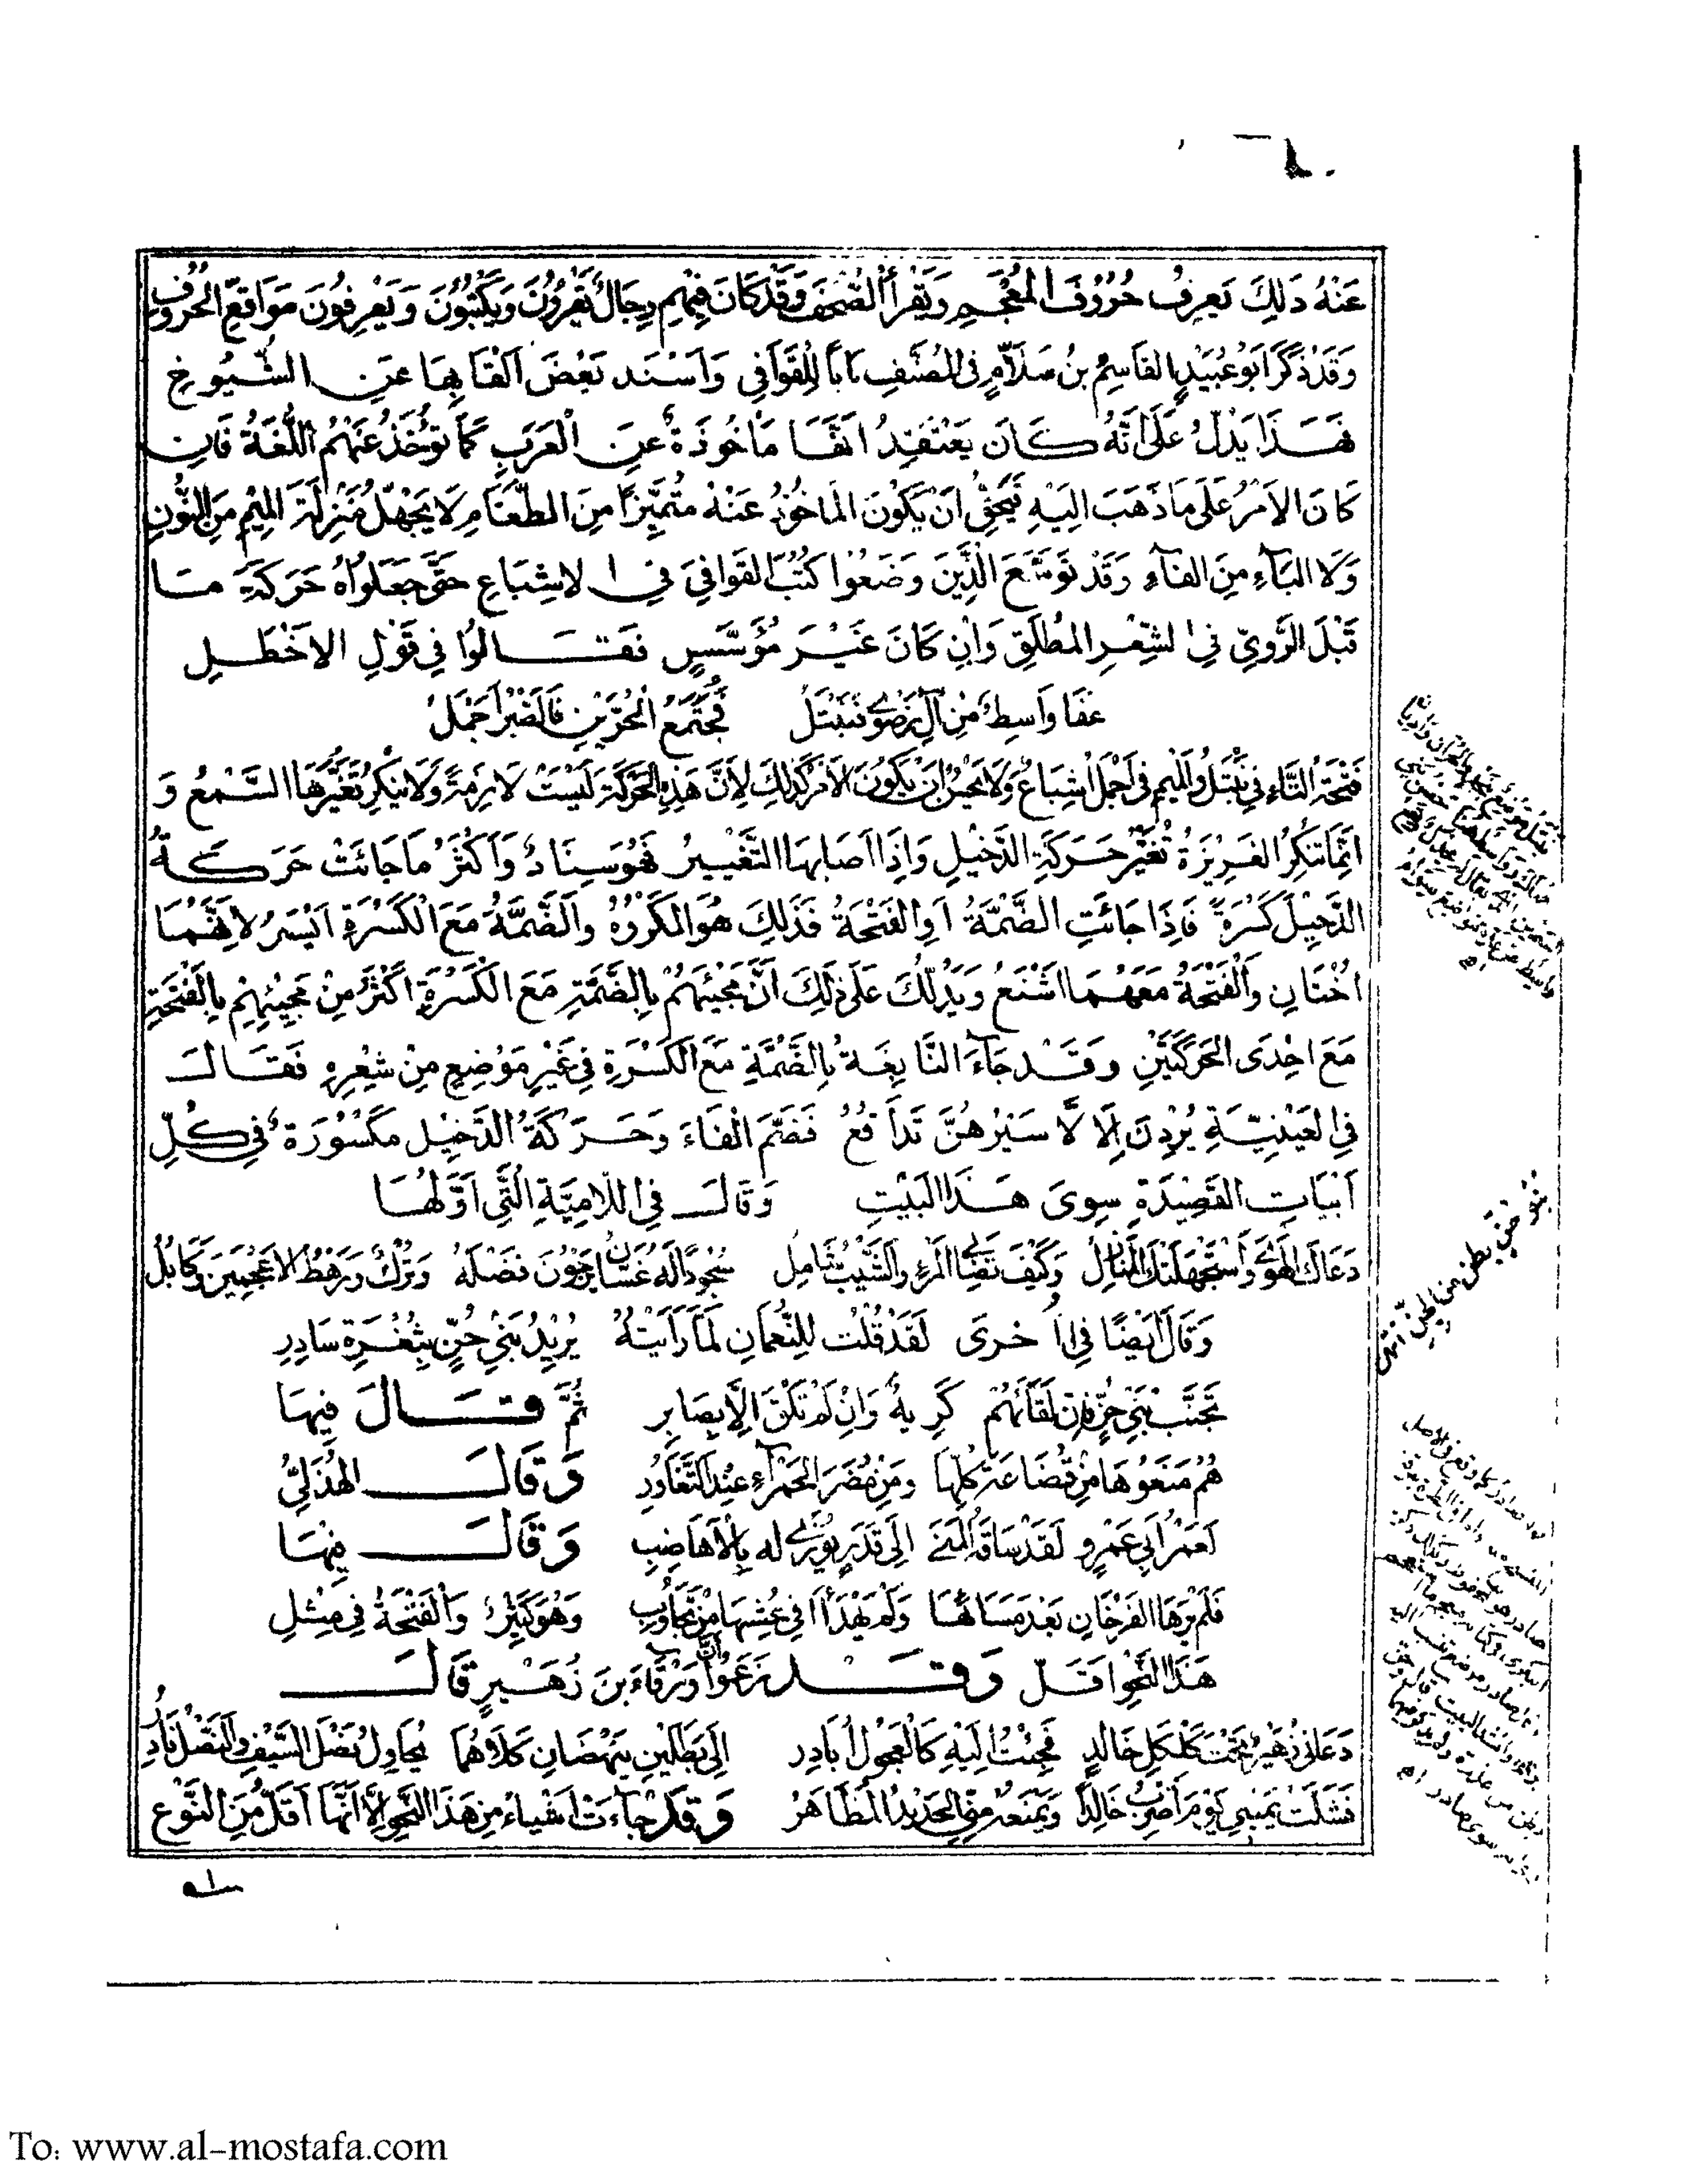 عَنْهُ ذَلِكَ يَعرِفُ حُرُوفَ المُعْجَمِ وَيَقْرأُ الصُّحُفَ وَقَدْ كَانَ فِيهِم رِجَالٌ يَقْرَؤُنَ وَيَكْتُبُونَ وَيَعْرِفُونَ مَوَاقِعَ الحُرُوفِ
وَقَدْ ذَكَرَ ابَوُ عُبَيْدٍ القَاسِمُ بنُ سَلَّامٍ فى المُصَنَّفِ بَابًا لِلْقَوَافِي وَاَسْنَدَ بَعْضَ اَلْقَابِهَا عَنِ الشُّيُوخِ
فَهَذَا يَدُلُّ عَلَى انَّهُ كَانَ يَعْتَقِدُ انَّهَا مَاْخُوذَةٌ عَنِ الْعَرَبِ كَمَا تُؤْخَذُ عَنْهُمُ اللُّغَةُ فَاِن
كَانَ الاَمْرُ عَلَى مَا ذَهَبَ اِلَيْهِ فَيَحِقُّ اَنْ يَكُوْنَ المَاخُوْذُ عَنْهُ مُتَمَيِّزًا مِنَ الطَّغَامِ لَا يَجْهَلُ مَنْزِلَةَ المِيْمِ مِنَ النُّونِ
وَلَا البَآءِ مِنَ الفَآءِ وَقَدْ تَوَسَّعَ الَّذِيْنَ وَضَعُوْا كُتُبَ القَوَافِي فِي الاِشِبَاعِ حَتَّى جَعَلُوْاهُ حَرَكَةَ مَا
قَبْلَ الرَّوِيِّ فِى الشِّعْرِ المُطْلَقِ وَاِنِ كَانَ غَيْرَ مُؤَسَّسٍ فَقَالُوْا فِي قَوْلِ الاَخْطَلِ
عَفَا وَاسِطٌ مِنْ آلِ رَضْوَى فَنَبْتَلُ فَمُجْتَمَعُ الحُرَّيْنِ فَالصَّبْرُ اَجْمَلُ
فَتْحَةُ التَّاءِ فِي نَبْتَلُ وَالمِيمِ فِي اَجْمَلُ اشِبَاعٌ وَلَا يَحْسُنُ اَنْ يَكُونَ الاَمْرُ كَذَلِكَ لِاَنَّ هَذِهِ الحَرَكَةَ لَيْسَتْ لَازِمَةً وَلَا يُنكِرُ تَغَيُّرَهَا السَّمْعُ وَ
اِنَّمَا تُنكِرُ الغَرِيزَةُ تَغَيُّرَ حَرَكَةِ الدَّخِيْلِ وَاِذَا اَصَابَهَا التَّغْيِيرُ فَهُوَ سِنَادٌ وَاَكْثَرُ مَا جَائَتْ حَرَكَةُ
الدَّخِيْلِ كَسْرَةً فَاِذَا جَائَتِ الضَّمَّةُ اَوِ الفَتْحَةُ فَذَلِكَ هُوَ المَكْرُوْهُ وَالضَّمَّةُ مَعَ الْكَسْرَةِ اَيْسَرُ لِاَنَّهُمَا
اُخْتَانِ وَالْفَتْحَةُ مَعَهُمَا اَشْنَعُ وَيَدُلُّكَ عَلَى ذَلِكَ اَنَّ مَجِيْئَهُمْ بِالضَّمَّةِ مَعَ الكَسْرَةِ اَكْثَرُ مِنْ مَجِيْئِهِمْ بِالْفَتْحَةِ
مَعَ اِحْدَى الحَرَكَتَيْنِ وَقَدْ جَآءَ النَّابِغَةُ بِالضَّمَّةِ مَعَ الكَسْرَةِ فِي غَيْرِ مَوْضِعٍ مِنْ شِعْرِهِ فَقَالَ
فِي العَيْنِيَّةِ يُرِدْنَ اِلَالًا سَيْرُهُنَّ تَدَافُعُ فَضَمَّ الْفَاءَ وَحَرَكَةُ الدَّخِيْلِ مَكْسُوْرَةٌ فِي كُلِّ
اَبْيَاتِ القَصِيْدَةِ سِوَى هَذَا البَيْتِ وَقَالَ فِي اللَّامِيَّةِ الَّتِي اَوَّلُهَا
دَعَاكَ الهَوَى وَاسْتَجْهَلَتْكَ المَنَازِلُ وَكَيْفَ تَصَابِى المَرْءِ وَالشَّيْبُ شَامِلُ سُجُوْدًا لَهُ غَسَّانُ يَرْجُوْنَ فَضْلَهُ وَتُرْكٌ وَرَهْطُ الاَعْجَمِيْنَ وَكَابُلُ
وَقَالَ اَيْضًا فِي اُخرَى لَقَدْ قُلْتُ لِلنُّعمَانِ لَمَّا رَاَيْتُهُ يُرِيْدُ بَنِي حُنٍّ بِثُغْرَةِ سَادِرِ
تَجَنَّبْ بَنِي حُنٍّ فَاِن لِقَآئَهُمْ كَرِيهٌ وَاِنْ لَمْ تَلْقَ اِلَّا بِصَابِرِ ثُمَّ قَالَ فِيهَا
هُمْ مَنَعُوهَا مِنْ قُضَاعَةَ كُلِّهَا وَمِنْ مُضَرَ الحَمْرَآءِ عِنْدَ التَّغَاوُرِ وَقَالَ الهُذَلِيُّ
لَعَمْرُ اَبِي عَمْرٍو لَقَدْ سَاقَهُ المَنَى اِلَى قَدَرٍ يُوْزَى له بِالْاَهَاضِبِ وَقَالَ فِيْهَا
فَلَمْ يَرَهَا الفَرْخَانِ بَعْدَ مَسَائِهَا وَلَمْ يَهْدَأَا فِي عُشِّهَا مِنْ تَجَاوُبِ وَهُوَ كَثِيْرٌ وَالْفَتْحَةُ فِي مِثْلِ
هَذَا النَّحْوِ اَقَلّ وَقَد زَعَمُوا اَنَّ وَرْقَاءَ بنَ زُهَيْرٍ قَالَ
دَعَانِى زُهَيْرٌ تَحْتَ كَلْكَلِ خَالِدٍ فَجِئْتُ اِلَيْهِ كَالْعَجُوْلِ اُبَادِر اِلَى بَطَلَيْنِ يَنْهَضَانِ كَلَاهُمَا يُحَاوِلُ نَصْلَ السَّيْفِ وَالنَّصْلُ نَادِرُ
فَشَلَّتْ يَمِيْنِي يَوْمَ اَضْرِبُ خَالِدًا وَيَمْنَعُهُ مِنِّي الحَدِيْدُ المُظَاهَرُ وَقَدْ جَآءَتْ اَشْيَاءُ مِنْ هَذَا النَّحْوِ اِلَّا اَنَّهَا اَقَلُّ مِنَ النَّوْعِ
To: www.al-mostafa.com